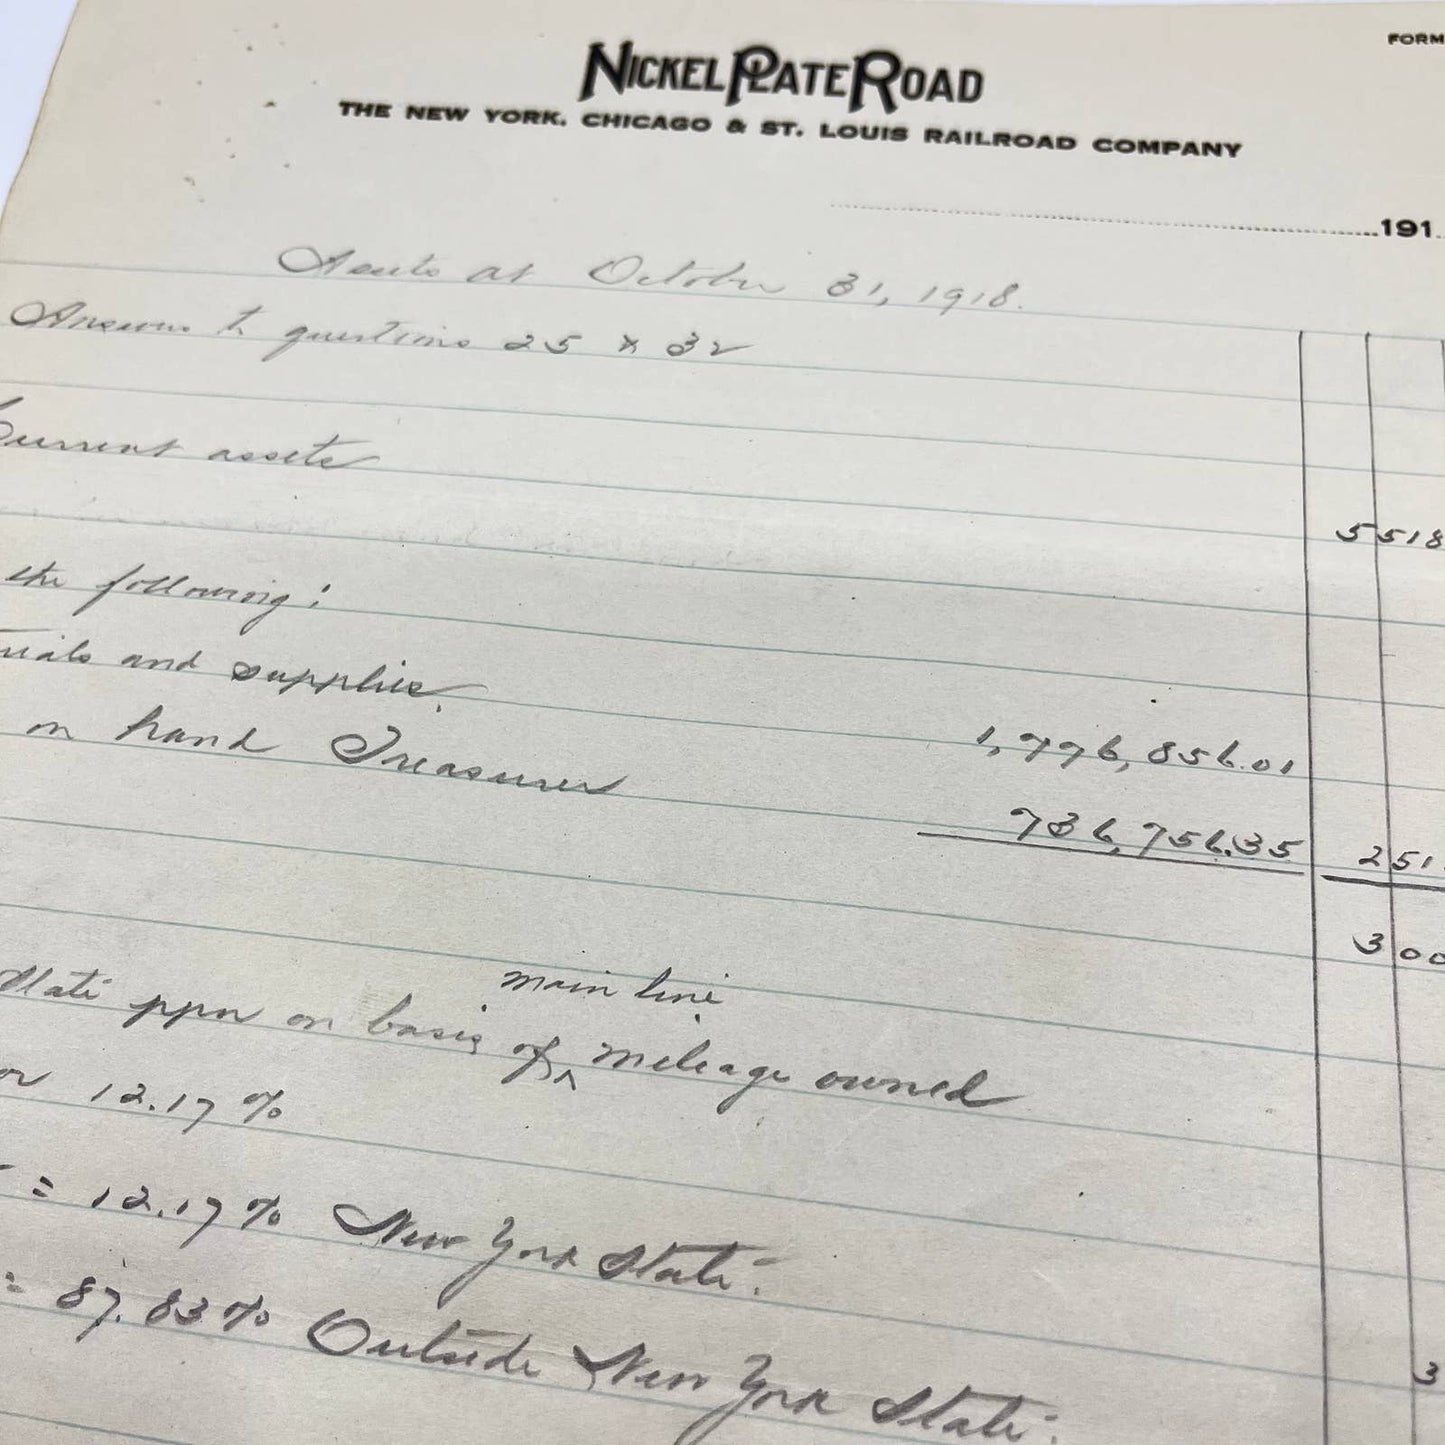 FORM
NICKEL PLATE ROAD
THE NEW YORK, CHICAGO & ST. LOUIS RAILROAD COMPANY
191
Assets at October 31, 1918.
Answers to questions 25 & 32
Current assets
5518
the following:
rials and supplies. 1,776,856.01
on hand Treasurer 736,756.35 251
300
State ppn on basis of main line mileage owned
or 12.17%
= 12.17% New York State.
= 87.83% Outside New York State.
3